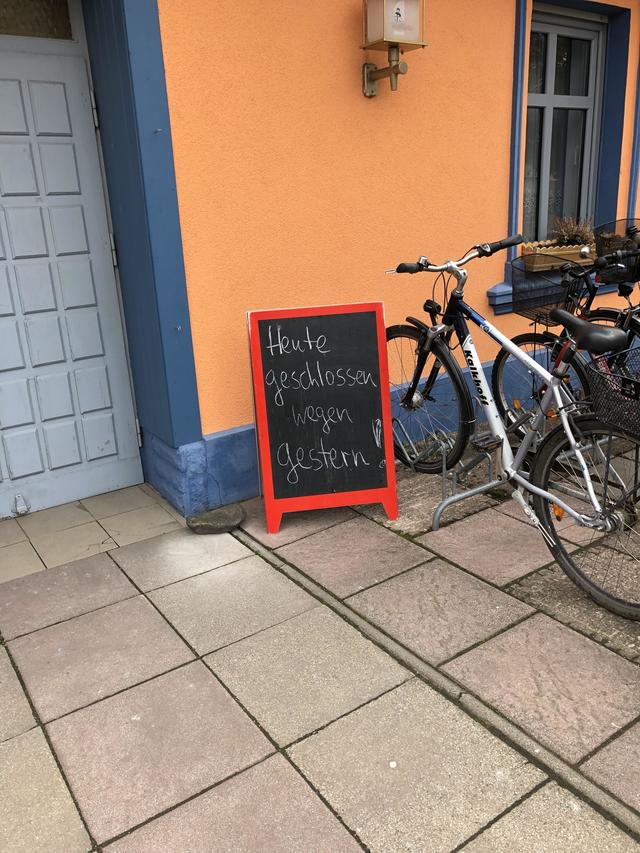 Heute
geschlossen
wegen
gestern!
Kalkhoff